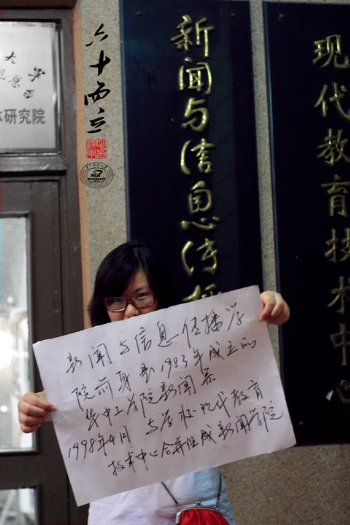 体研究院
六十而立
新闻与信息传播
现代教育技术中心
新闻与信息传播学
院前身是1983年成立的
华中工学院新闻系
1998年4月 与学校现代教育
技术中心合并组成新闻学院